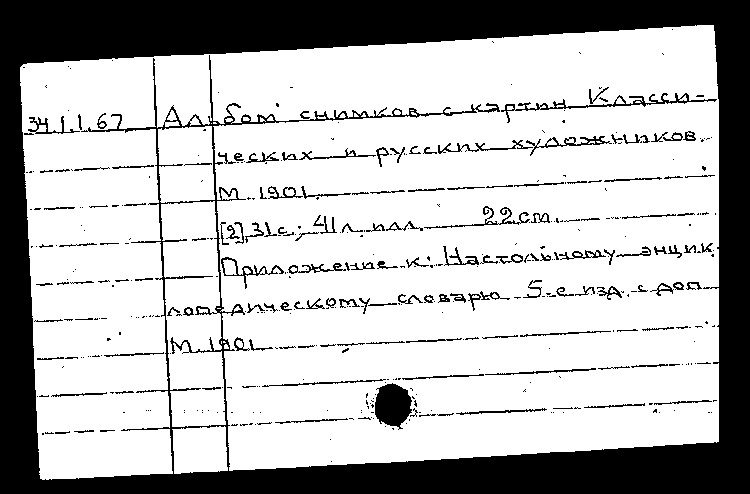 34.1.1.67 Альбом снимков с картин Класси-
ческих и русских художников.
М. 1901.
[2], 31с.; 41л. илл. 22см.
Приложение к: Настольному энцик
лопедическому словарю 5-е изд. с доп
М. 1901